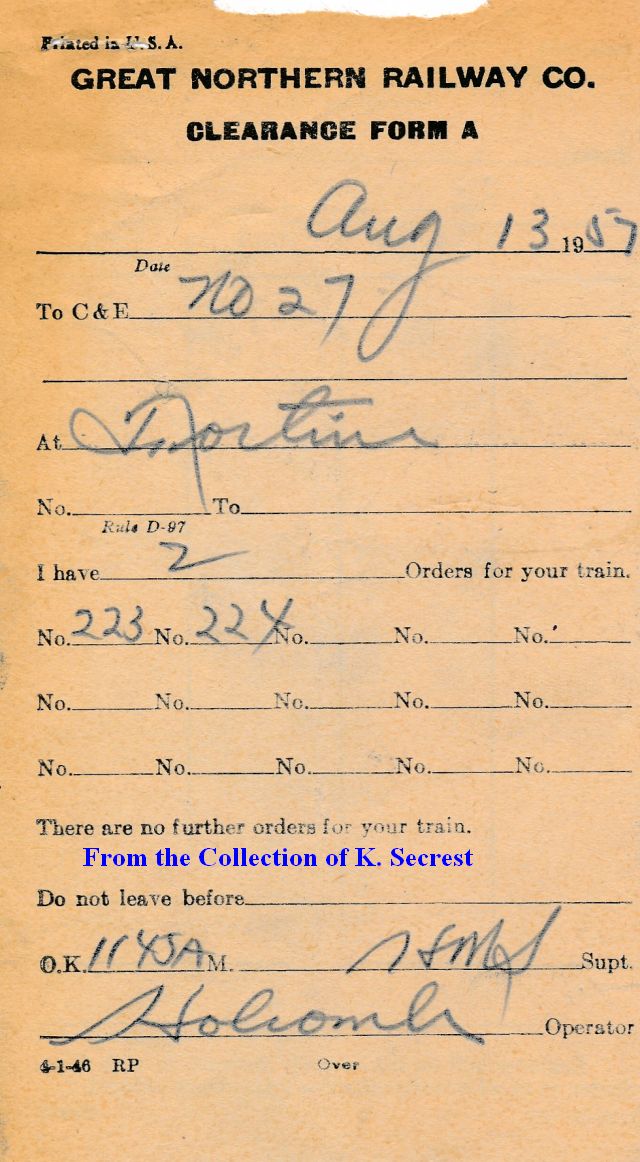 Printed in U.S.A.
GREAT NORTHERN RAILWAY CO.
CLEARANCE FORM A
Aug 13 1957
Date
To C & E No 27
At Fortine
No. To
Rule D-97
I have 2 Orders for your train.
No. 223 No. 224 No. No. No.
No. No. No. No. No.
No. No. No. No. No.
There are no further orders for your train.
From the Collection of K. Secrest
Do not leave before
O.K. 1145A M. Supt.
Holcomb Operator
4-1-46 RP Over